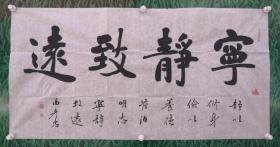 寧靜致遠
靜以
修身
儉以
養德
澹泊
明志
寧靜
致遠